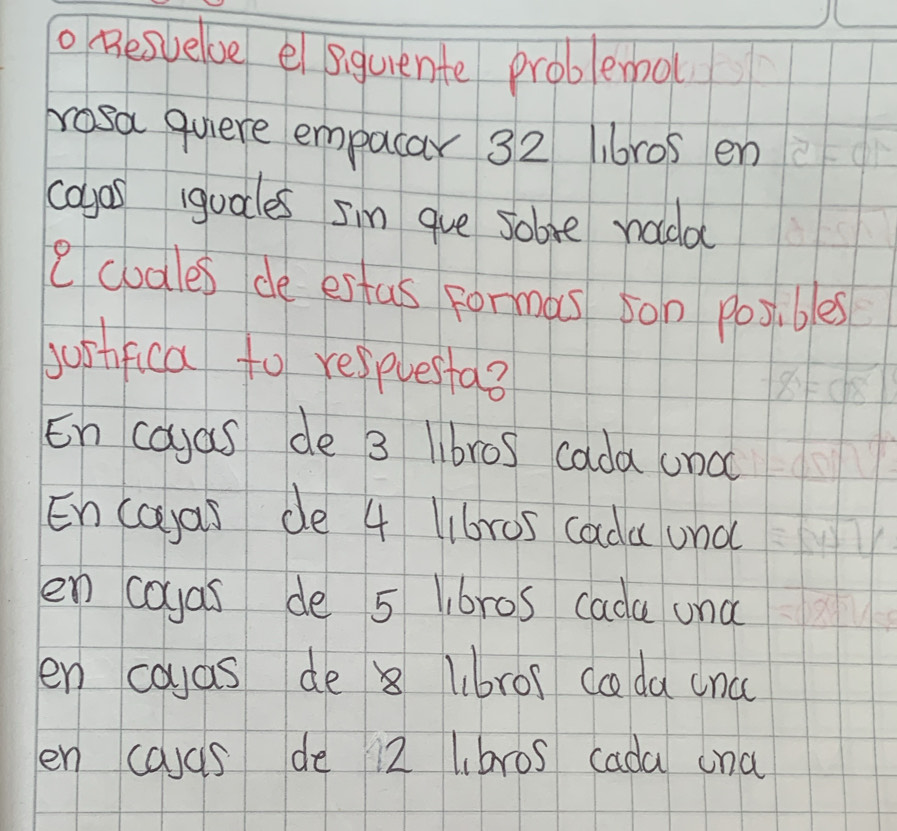 o Resuelve el siguiente problema
rosa quiere empacar 32 libros en
cajas iguales sin que sobre nada
¿ cuales de estas formas son posibles
justifica tu respuesta?
En cajas de 3 libros cada una
En cajas de 4 libros cada una
en cajas de 5 libros cada una
en cajas de 8 libros cada una
en cajas de 12 libros cada una